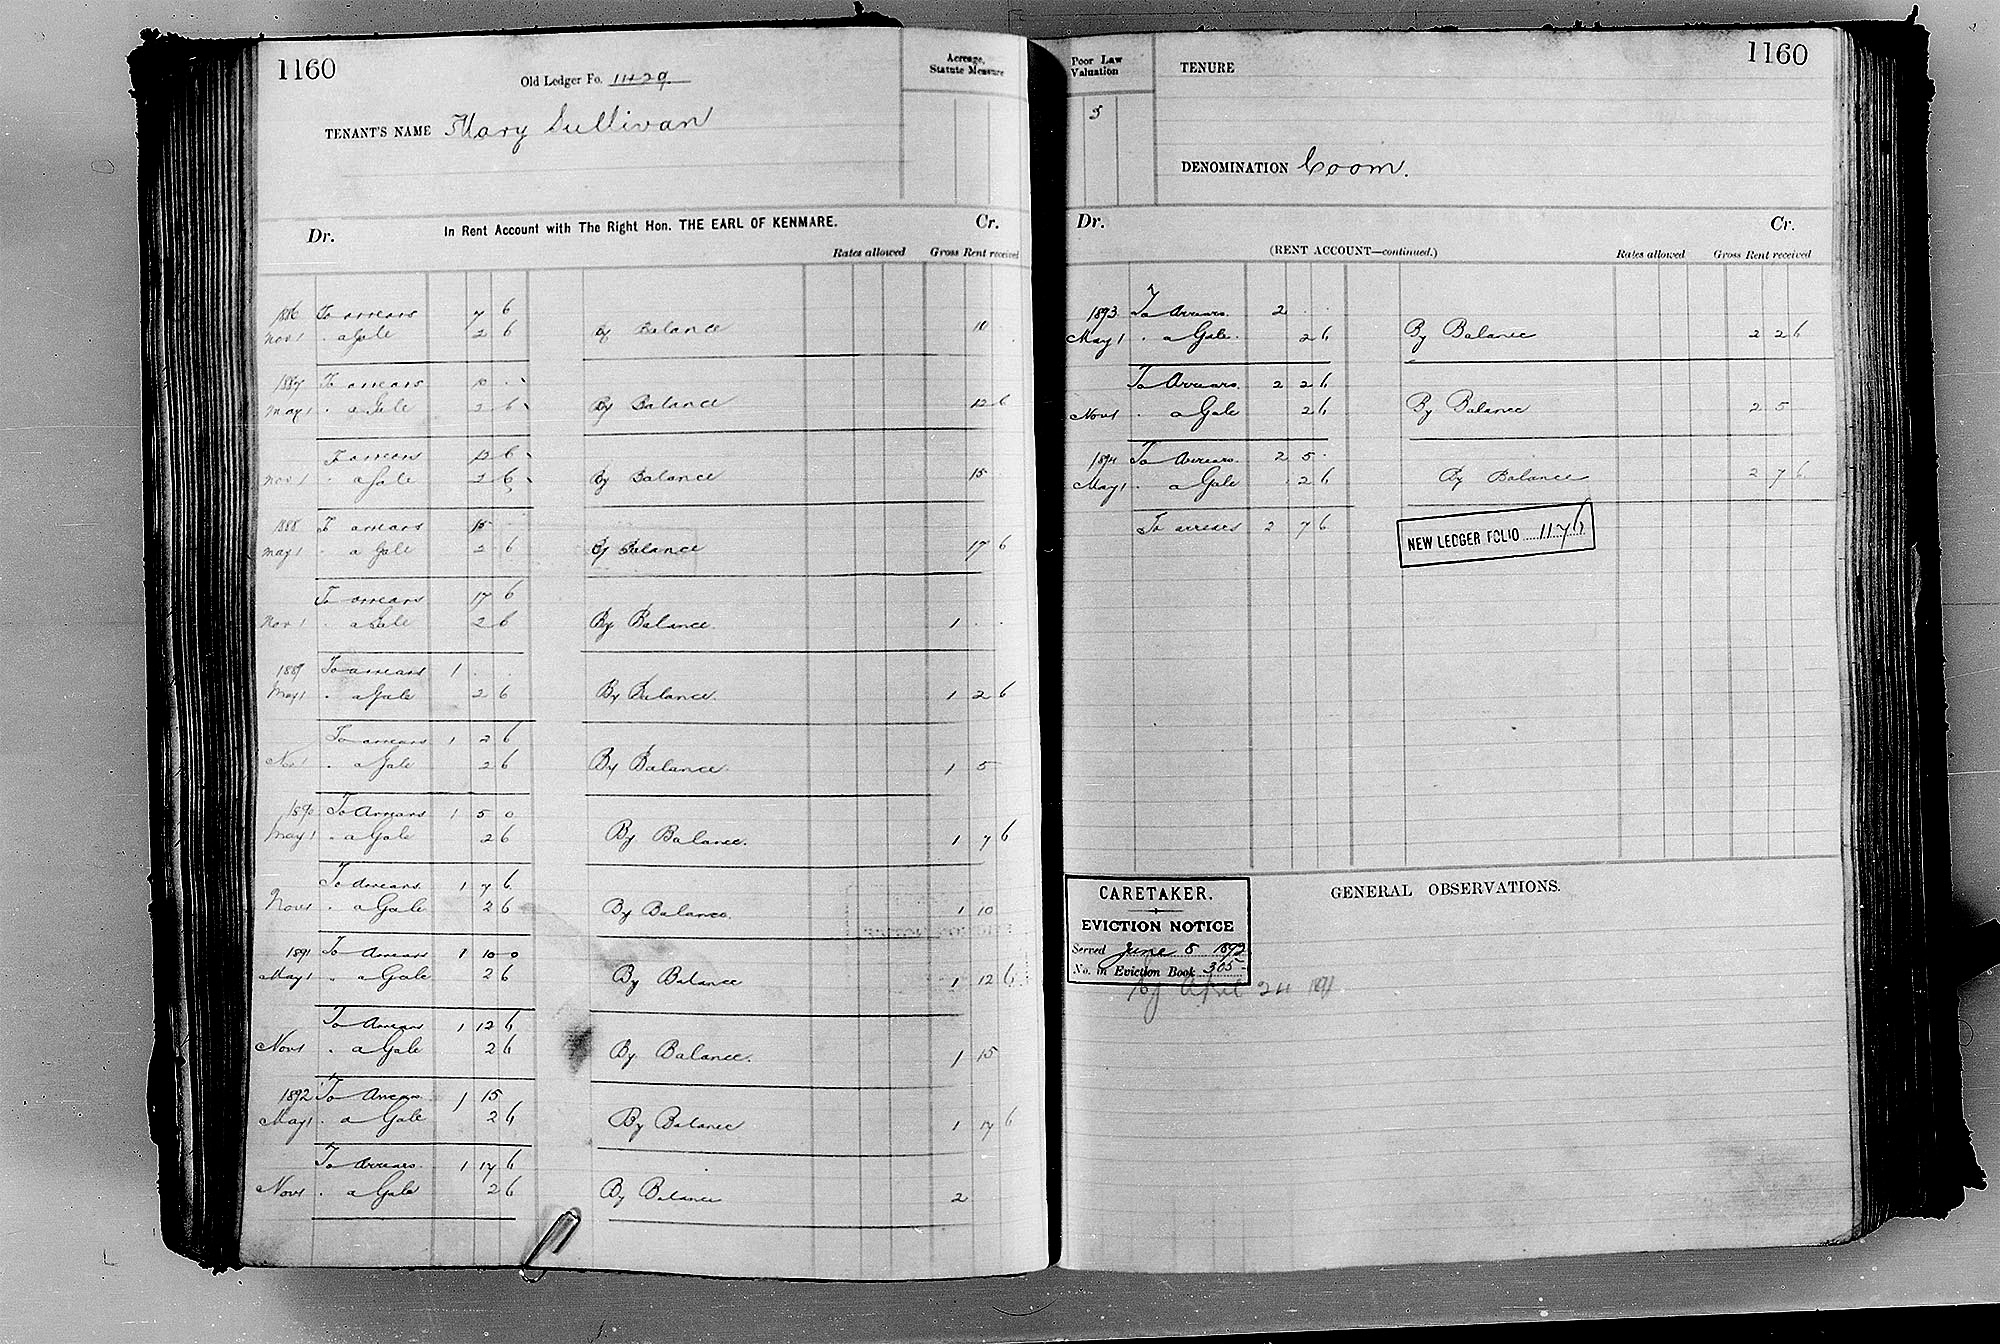 1160
Old Ledger Fo. 1429
Acreage, Statute Measure
TENANT'S NAME Mary Sullivan
In Rent Account with The Right Hon. THE EARL OF KENMARE.
Dr. Cr.
Rates allowed Gross Rent received
1886 To arrears 7 6
Nov 1 " a Gale 2 6 By Balance 10
1887 To arrears 10 . .
May 1 " a Gale 2 6 By Balance 12 6
To arrears 12 6
Nov 1 " a Gale 2 6 By Balance 15
1888 To arrears 15
May 1 " a Gale 2 6 By Balance 17 6
To arrears 17 6
Nov 1 " a Gale 2 6 By Balance 1 . .
1889 To arrears 1 . .
May 1 " a Gale 2 6 By Balance 1 2 6
To arrears 1 2 6
Nov 1 " a Gale 2 6 By Balance 1 5
1890 To Arrears 1 5 0
May 1 " a Gale 2 6 By Balance. 1 7 6
To Arrears 1 7 6
Nov 1 " a Gale 2 6 By Balance. 1 10
1891 To Arrears 1 10 0
May 1 " a Gale 2 6 By Balance 1 12 6
To Arrears 1 12 6
Nov 1 " a Gale 2 6 By Balance. 1 15
1892 To Arrears 1 15
May 1 " a Gale 2 6 By Balance 1 17 6
To Arrears 1 17 6
Nov 1 " a Gale 2 6 By Balance 2
1160
Poor Law Valuation
5
TENURE
DENOMINATION Coom.
Dr. Cr.
(RENT ACCOUNT—continued.) Rates allowed Gross Rent received
1893 To Arrears. 2 . .
May 1 " a Gale. 2 6 By Balance 2 2 6
To Arrears. 2 2 6
Nov 1 " a Gale 2 6 By Balance 2 5
1894 To Arrears. 2 5 .
May 1 " a Gale 2 6 By Balance 2 7 6
To arrears 2 7 6
NEW LEDGER FOLIO 1176
GENERAL OBSERVATIONS.
CARETAKER.
EVICTION NOTICE
Served June 8 1892
No. in Eviction Book 305
April 24